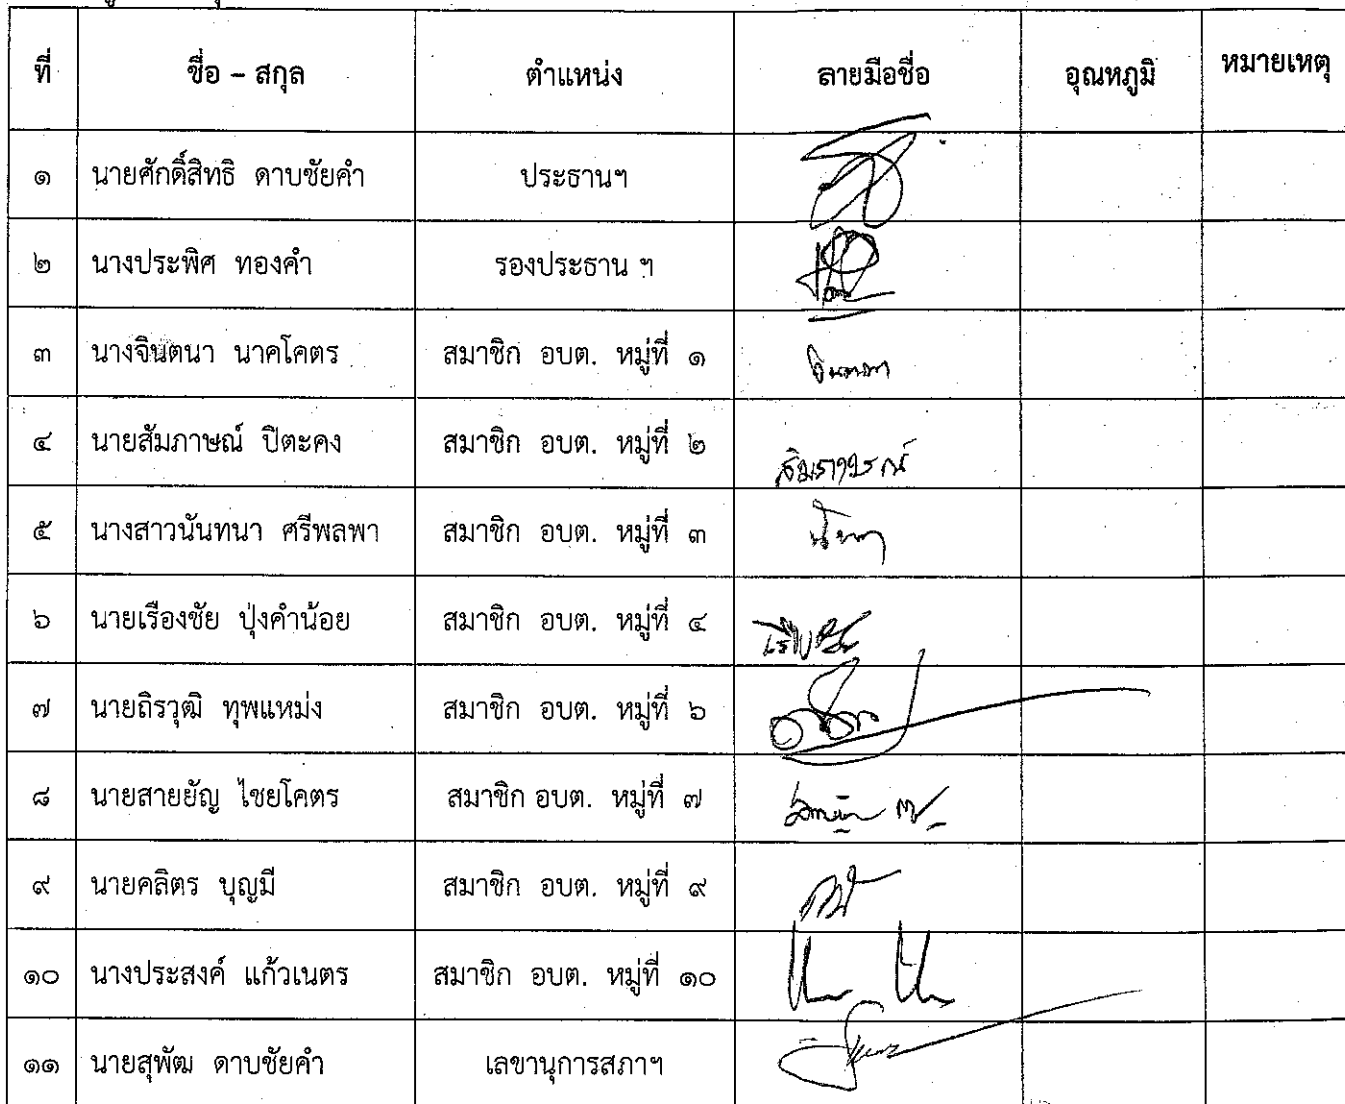 ที่ ชื่อ – สกุล ตำแหน่ง ลายมือชื่อ อุณหภูมิ หมายเหตุ
๑ นายศักดิ์สิทธิ ดาบชัยคำ ประธานฯ
๒ นางประพิศ ทองคำ รองประธาน ฯ
๓ นางจินตนา นาคโคตร สมาชิก อบต. หมู่ที่ ๑ จินตนา
๔ นายสัมภาษณ์ ปิตะคง สมาชิก อบต. หมู่ที่ ๒ สัมภาษณ์
๕ นางสาวนันทนา ศรีพลพา สมาชิก อบต. หมู่ที่ ๓
๖ นายเรืองชัย ปุ่งคำน้อย สมาชิก อบต. หมู่ที่ ๔
๗ นายถิรวุฒิ ทุพแหม่ง สมาชิก อบต. หมู่ที่ ๖
๘ นายสายยัญ ไชยโคตร สมาชิก อบต. หมู่ที่ ๗
๙ นายคลิตร บุญมี สมาชิก อบต. หมู่ที่ ๙
๑๐ นางประสงค์ แก้วเนตร สมาชิก อบต. หมู่ที่ ๑๐
๑๑ นายสุพัฒ ดาบชัยคำ เลขานุการสภาฯ